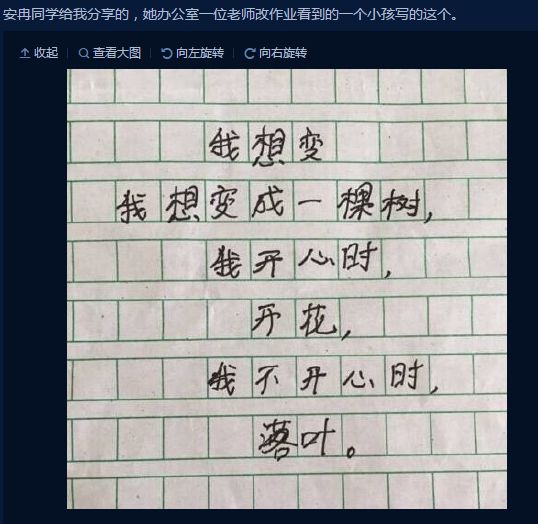 安冉同学给我分享的，她办公室一位老师改作业看到的一个小孩写的这个。
收起 查看大图 向左旋转 向右旋转
我想变
我想变成一棵树，
我开心时，
开花，
我不开心时，
落叶。